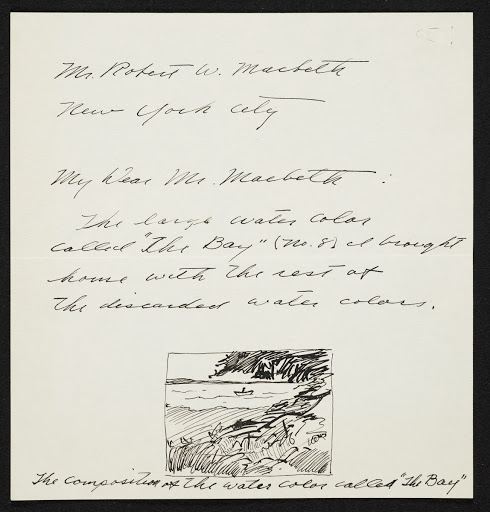 Mr. Robert W. Macbeth
New York City
My Dear Mr. Macbeth :
The large water color
called "The Bay" (No. 8) I brought
home with the rest of
the discarded water colors.
The composition of the water color called "The Bay"